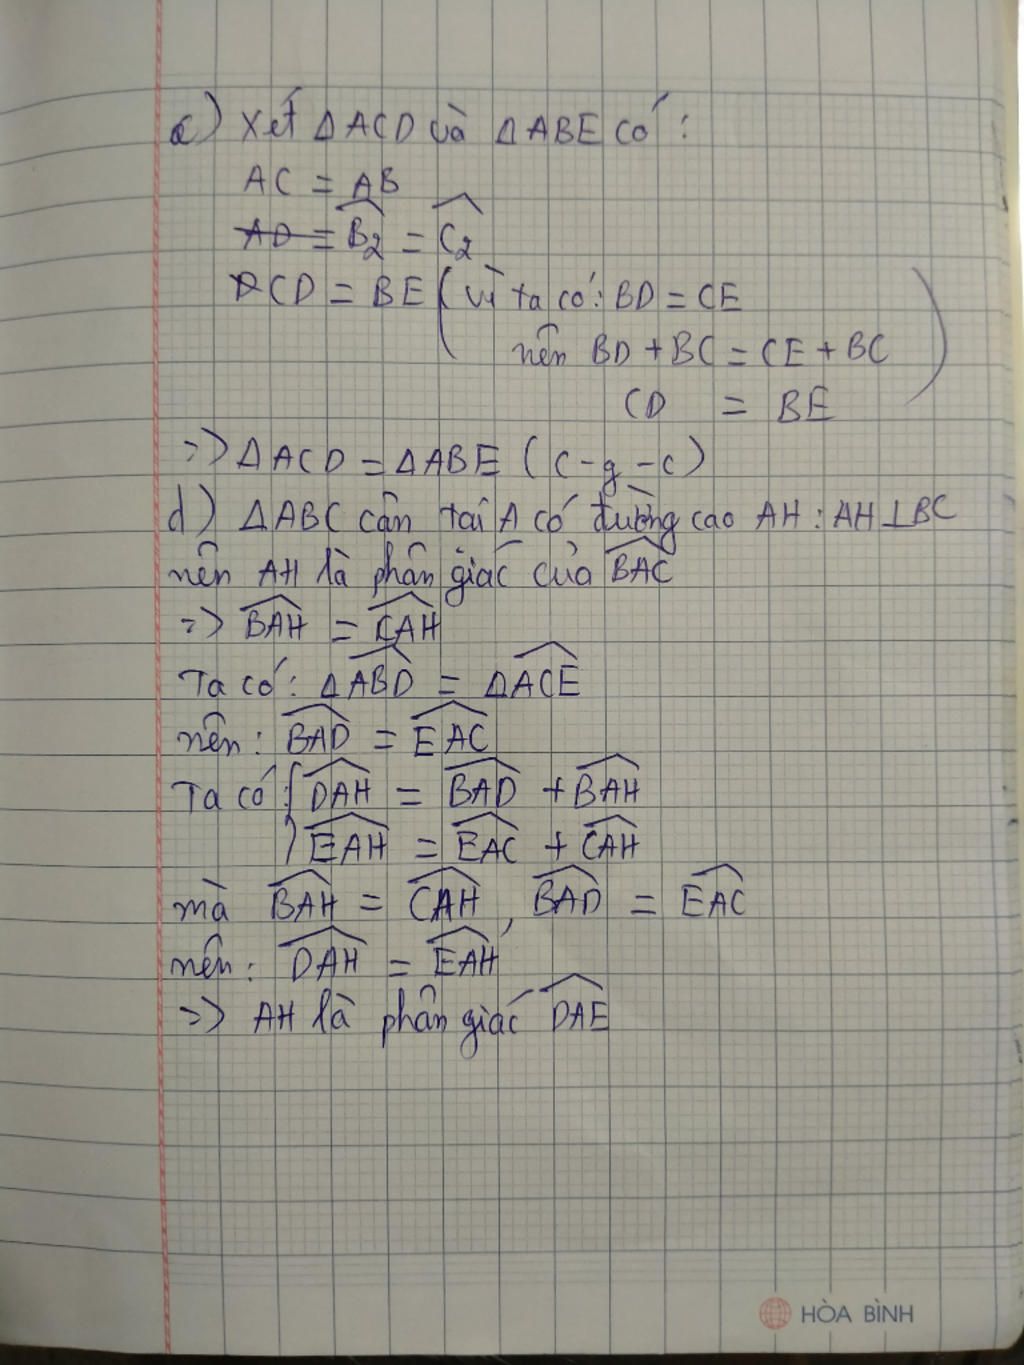 c) Xét ΔACD và ΔABE có:
AC = AB
AD = B̂₂ = Ĉ₂
CD = BE (vì ta có: BD = CE
nên BD + BC = CE + BC
CD = BE)
=> ΔACD = ΔABE (c-g-c)
d) ΔABC cân tai A có đường cao AH : AH⊥BC
nên AH là phân giác của \widehat{BAC}
=> \widehat{BAH} = \widehat{CAH}
Ta có: Δ\widehat{ABD} = Δ\widehat{ACE}
nên: \widehat{BAD} = \widehat{EAC}
Ta có { \widehat{DAH} = \widehat{BAD} + \widehat{BAH}
\widehat{EAH} = \widehat{EAC} + \widehat{CAH}
mà \widehat{BAH} = \widehat{CAH}, \widehat{BAD} = \widehat{EAC}
nên: \widehat{DAH} = \widehat{EAH}
=> AH là phân giác \widehat{DAE}
HÒA BÌNH